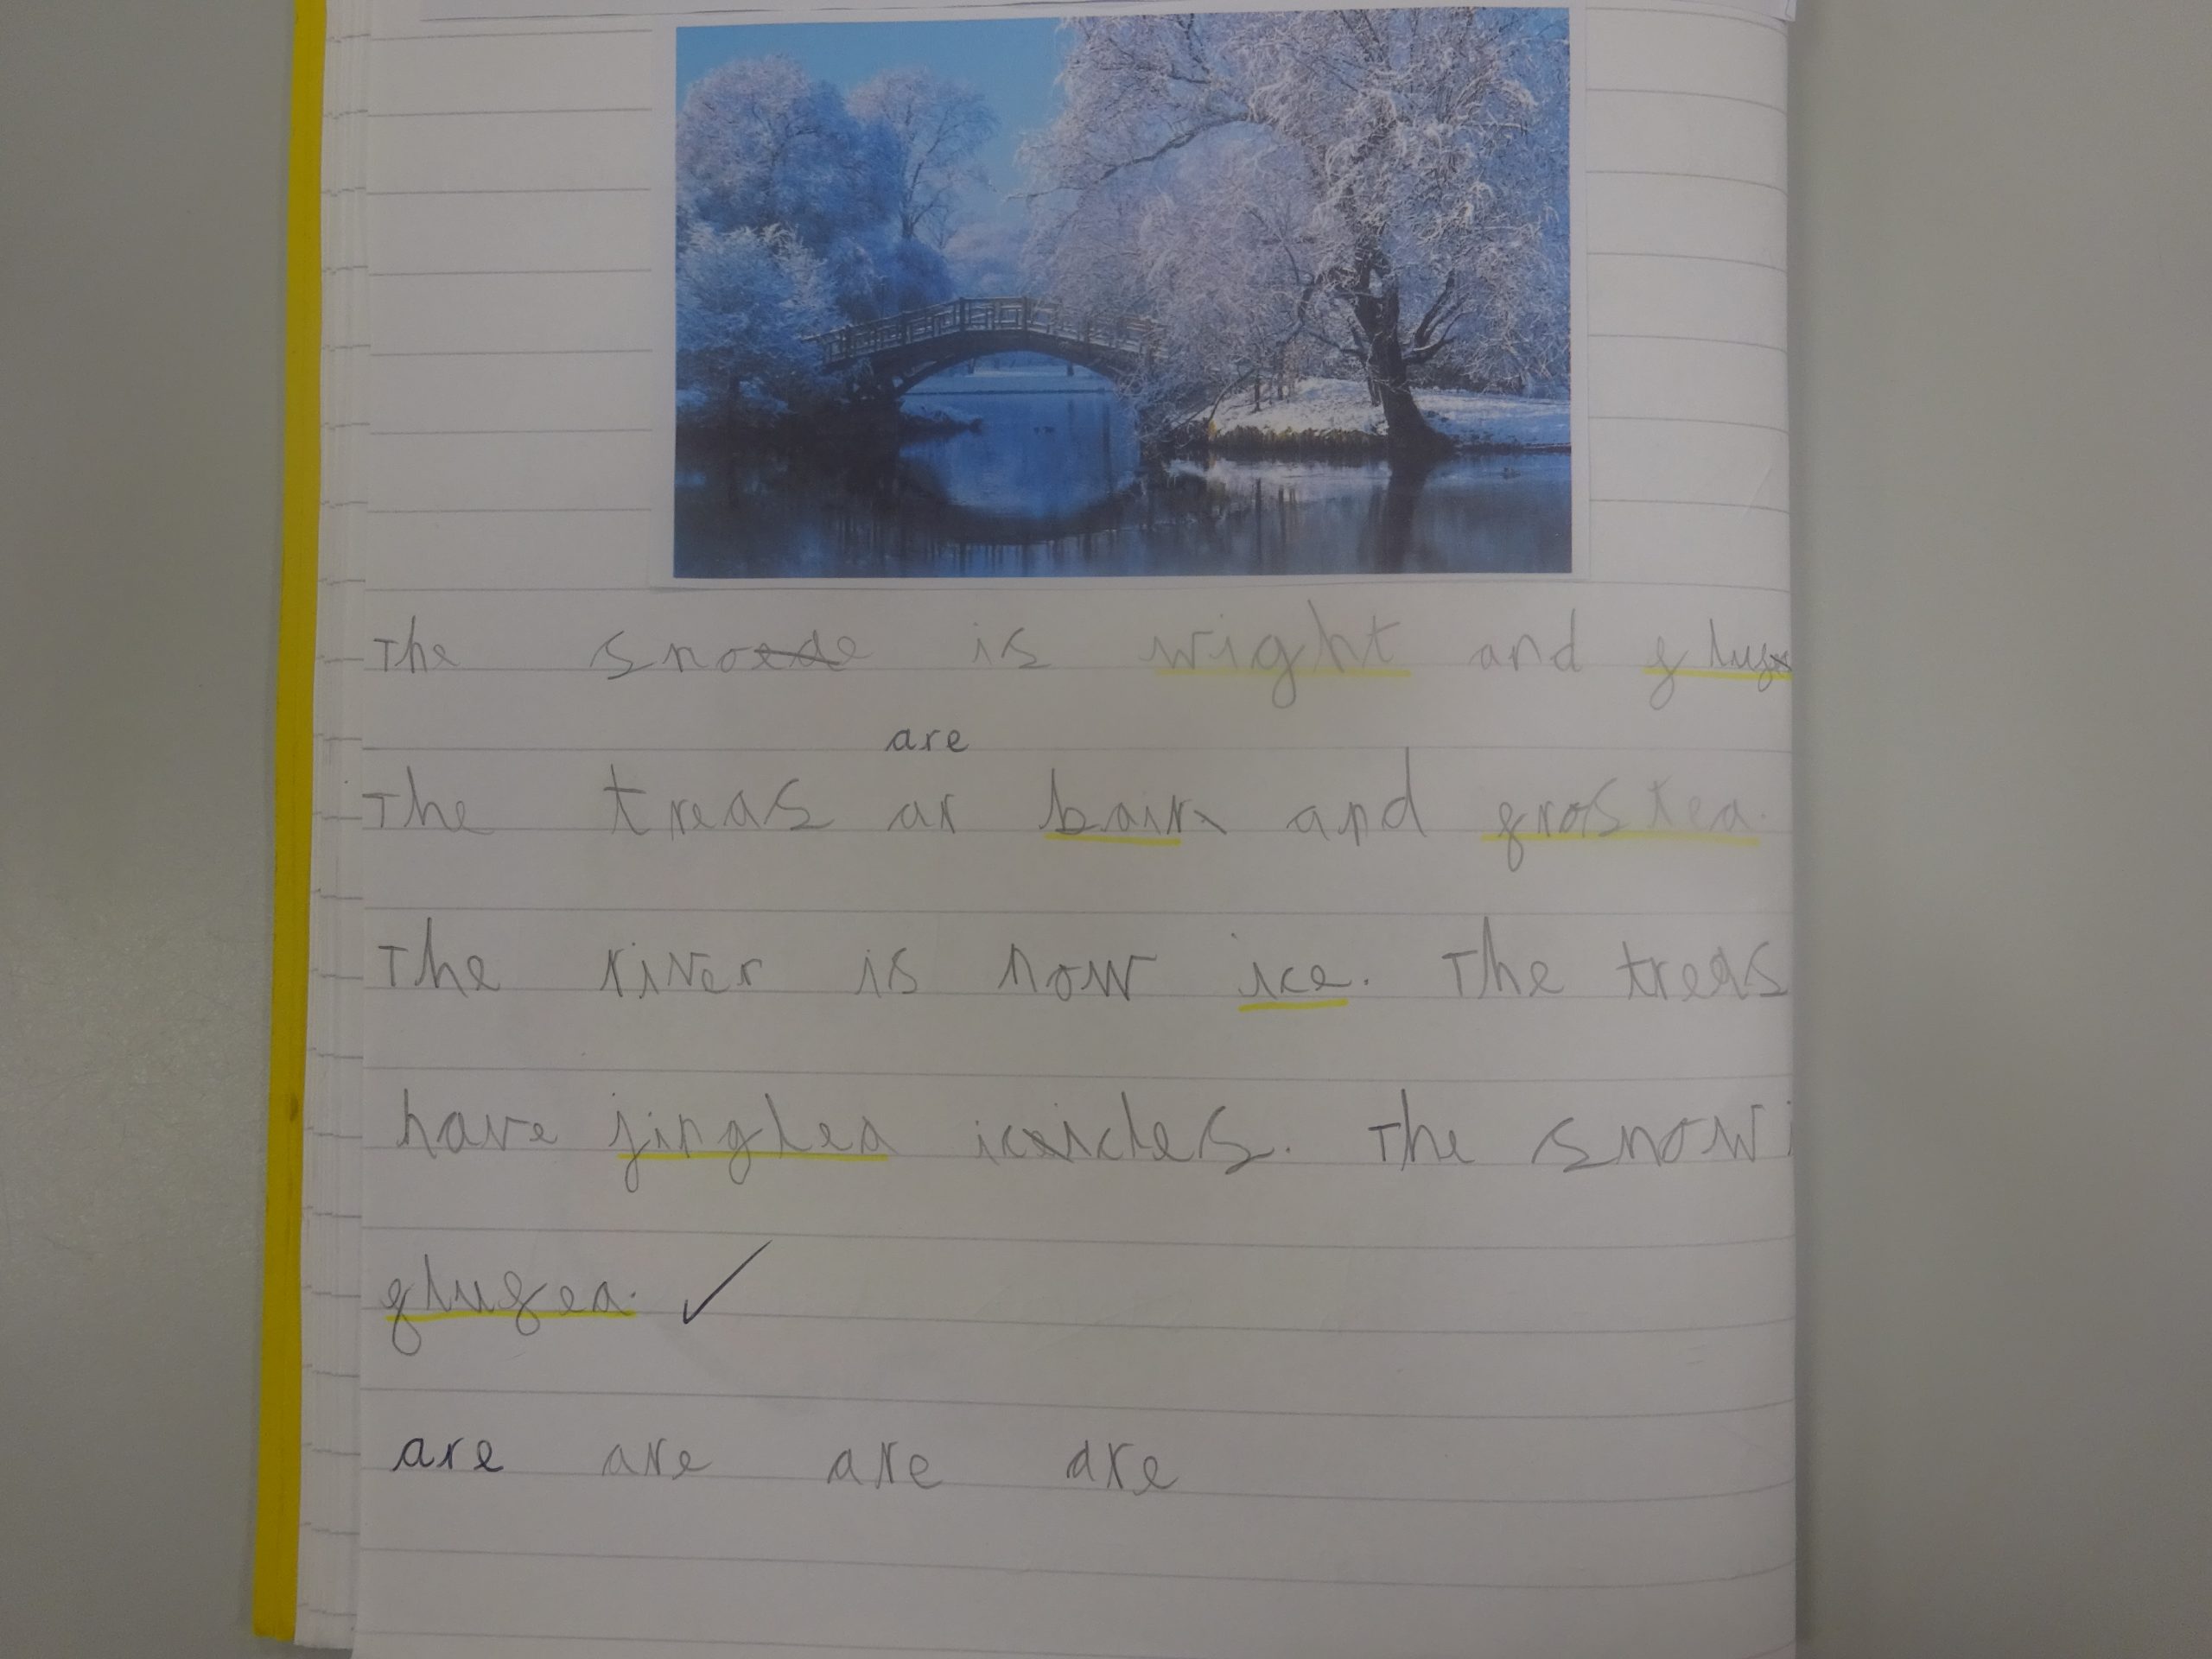 The sno is wight and
are
The treas ar bair and frostea.
The river is now ice. The treas
have jinglea icicles. The snow i
flufea. ✓
are are are are